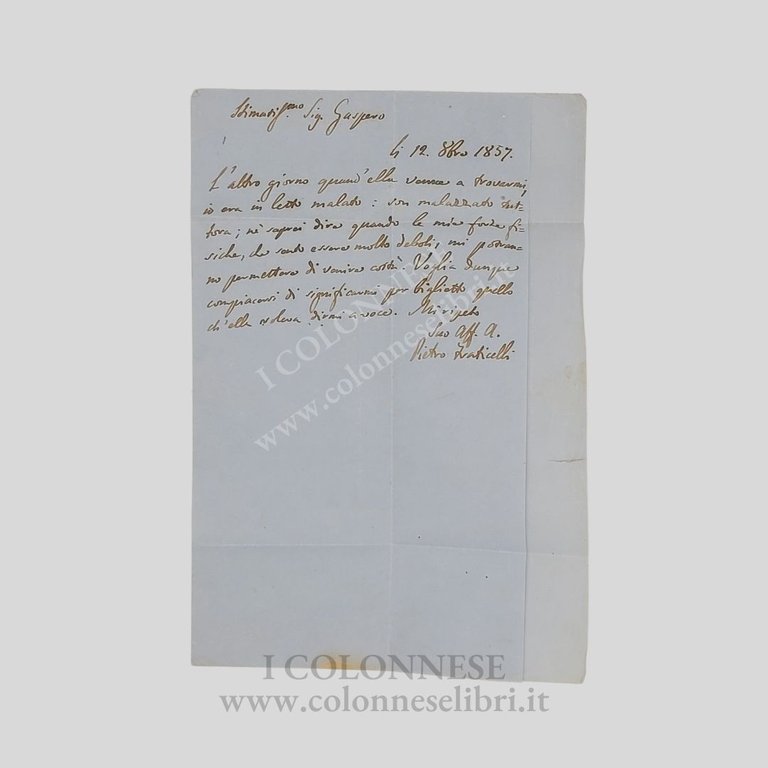 Stimatiss.mo Sig. Gaspero
li 12. 8bre 1857.
L'altro giorno quand'ella venne a trovarmi,
io era in letto malato: son malazzato tut-
tora; nè saprei dire quando le mie forze fi-
siche, che sento essere molto deboli, mi potran-
no permettere di venire costà. Voglia dunque
compiacersi di significarmi per biglietto quello
ch'ella voleva dirmi a voce. Mi ripeto
Suo Aff. A.
Pietro Fraticelli
I COLONNESE
www.colonneselibri.it
I COLONNESE
www.colonneselibri.it